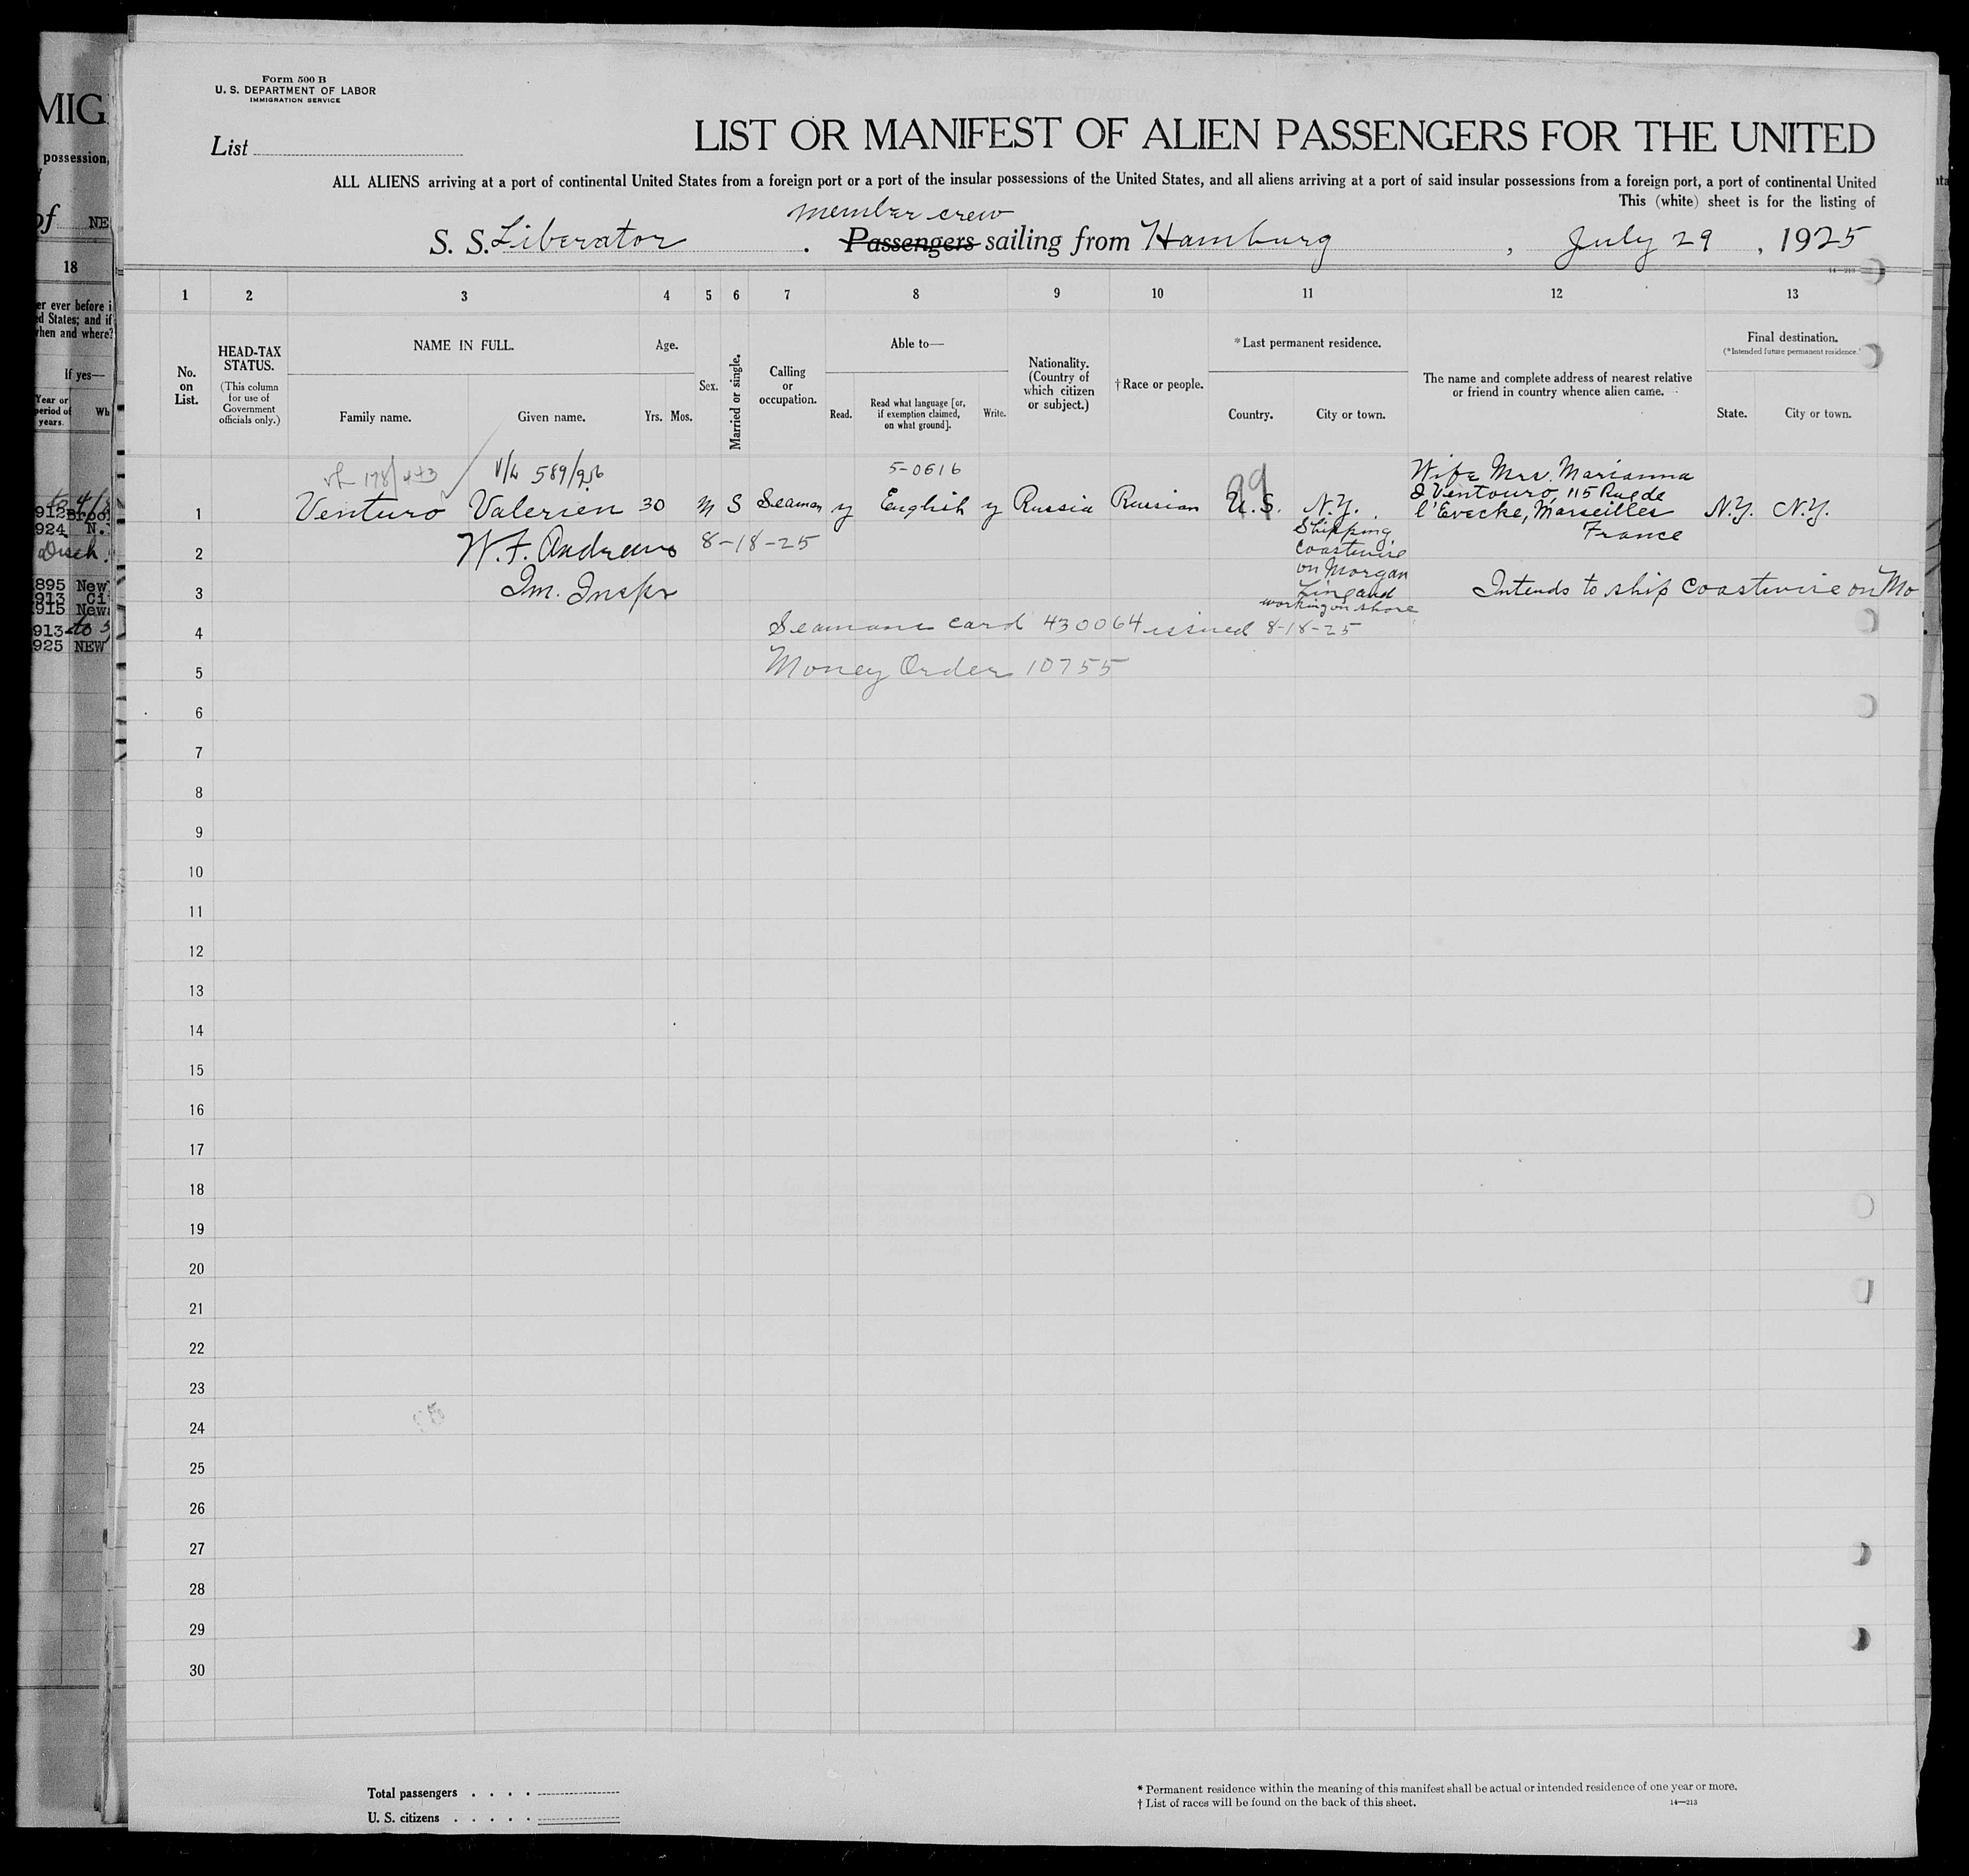 Form 500 B
U. S. DEPARTMENT OF LABOR
IMMIGRATION SERVICE
List
LIST OR MANIFEST OF ALIEN PASSENGERS FOR THE UNITED
ALL ALIENS arriving at a port of continental United States from a foreign port or a port of the insular possessions of the United States, and all aliens arriving at a port of said insular possessions from a foreign port, a port of continental United
This (white) sheet is for the listing of
member crew
S. S. Liberator . Passengers sailing from Hamburg , July 29 , 1925
14—213
1 2 3 4 5 6 7 8 9 10 11 12 13
No. on List.
HEAD-TAX STATUS.
(This column for use of Government officials only.)
NAME IN FULL.
Family name. Given name.
Age.
Yrs. Mos.
Sex.
Married or single.
Calling or occupation.
Able to—
Read.
Read what language [or, if exemption claimed, on what ground].
Write.
Nationality. (Country of which citizen or subject.)
†Race or people.
*Last permanent residence.
Country. City or town.
The name and complete address of nearest relative or friend in country whence alien came.
Final destination.
(*Intended future permanent residence.)
State. City or town.
V/L 589/956
5-0616
99
1 Venturo Valerien 30 M S Seaman y English y Russia Russian U.S. N.Y.
Wife Mrs. Marianna
Ventouro, 115 Rue de
l'Evecke, Marseilles
France
N.Y. N.Y.
2 W. F. Andrews 8-18-25
Im. Inspr
Shipping
coastwise
on Morgan
Line and
working on shore
3 Intends to ship coastwise on Mo
4 Seamans card 430064 issued 8-18-25
5 Money Order 10755
6
7
8
9
10
11
12
13
14
15
16
17
18
19
20
21
22
23
24
25
26
27
28
29
30
Total passengers . . . .
U. S. citizens . . . . .
* Permanent residence within the meaning of this manifest shall be actual or intended residence of one year or more.
† List of races will be found on the back of this sheet.
14—213
MIG
possession,
of NE
18
er ever before i
ed States; and if
when and where?
If yes—
Year or period of years.
Wh
912 Broo
924 N.
Disch.
895 New
913 Ci
915 New
913 to 5
925 NEW